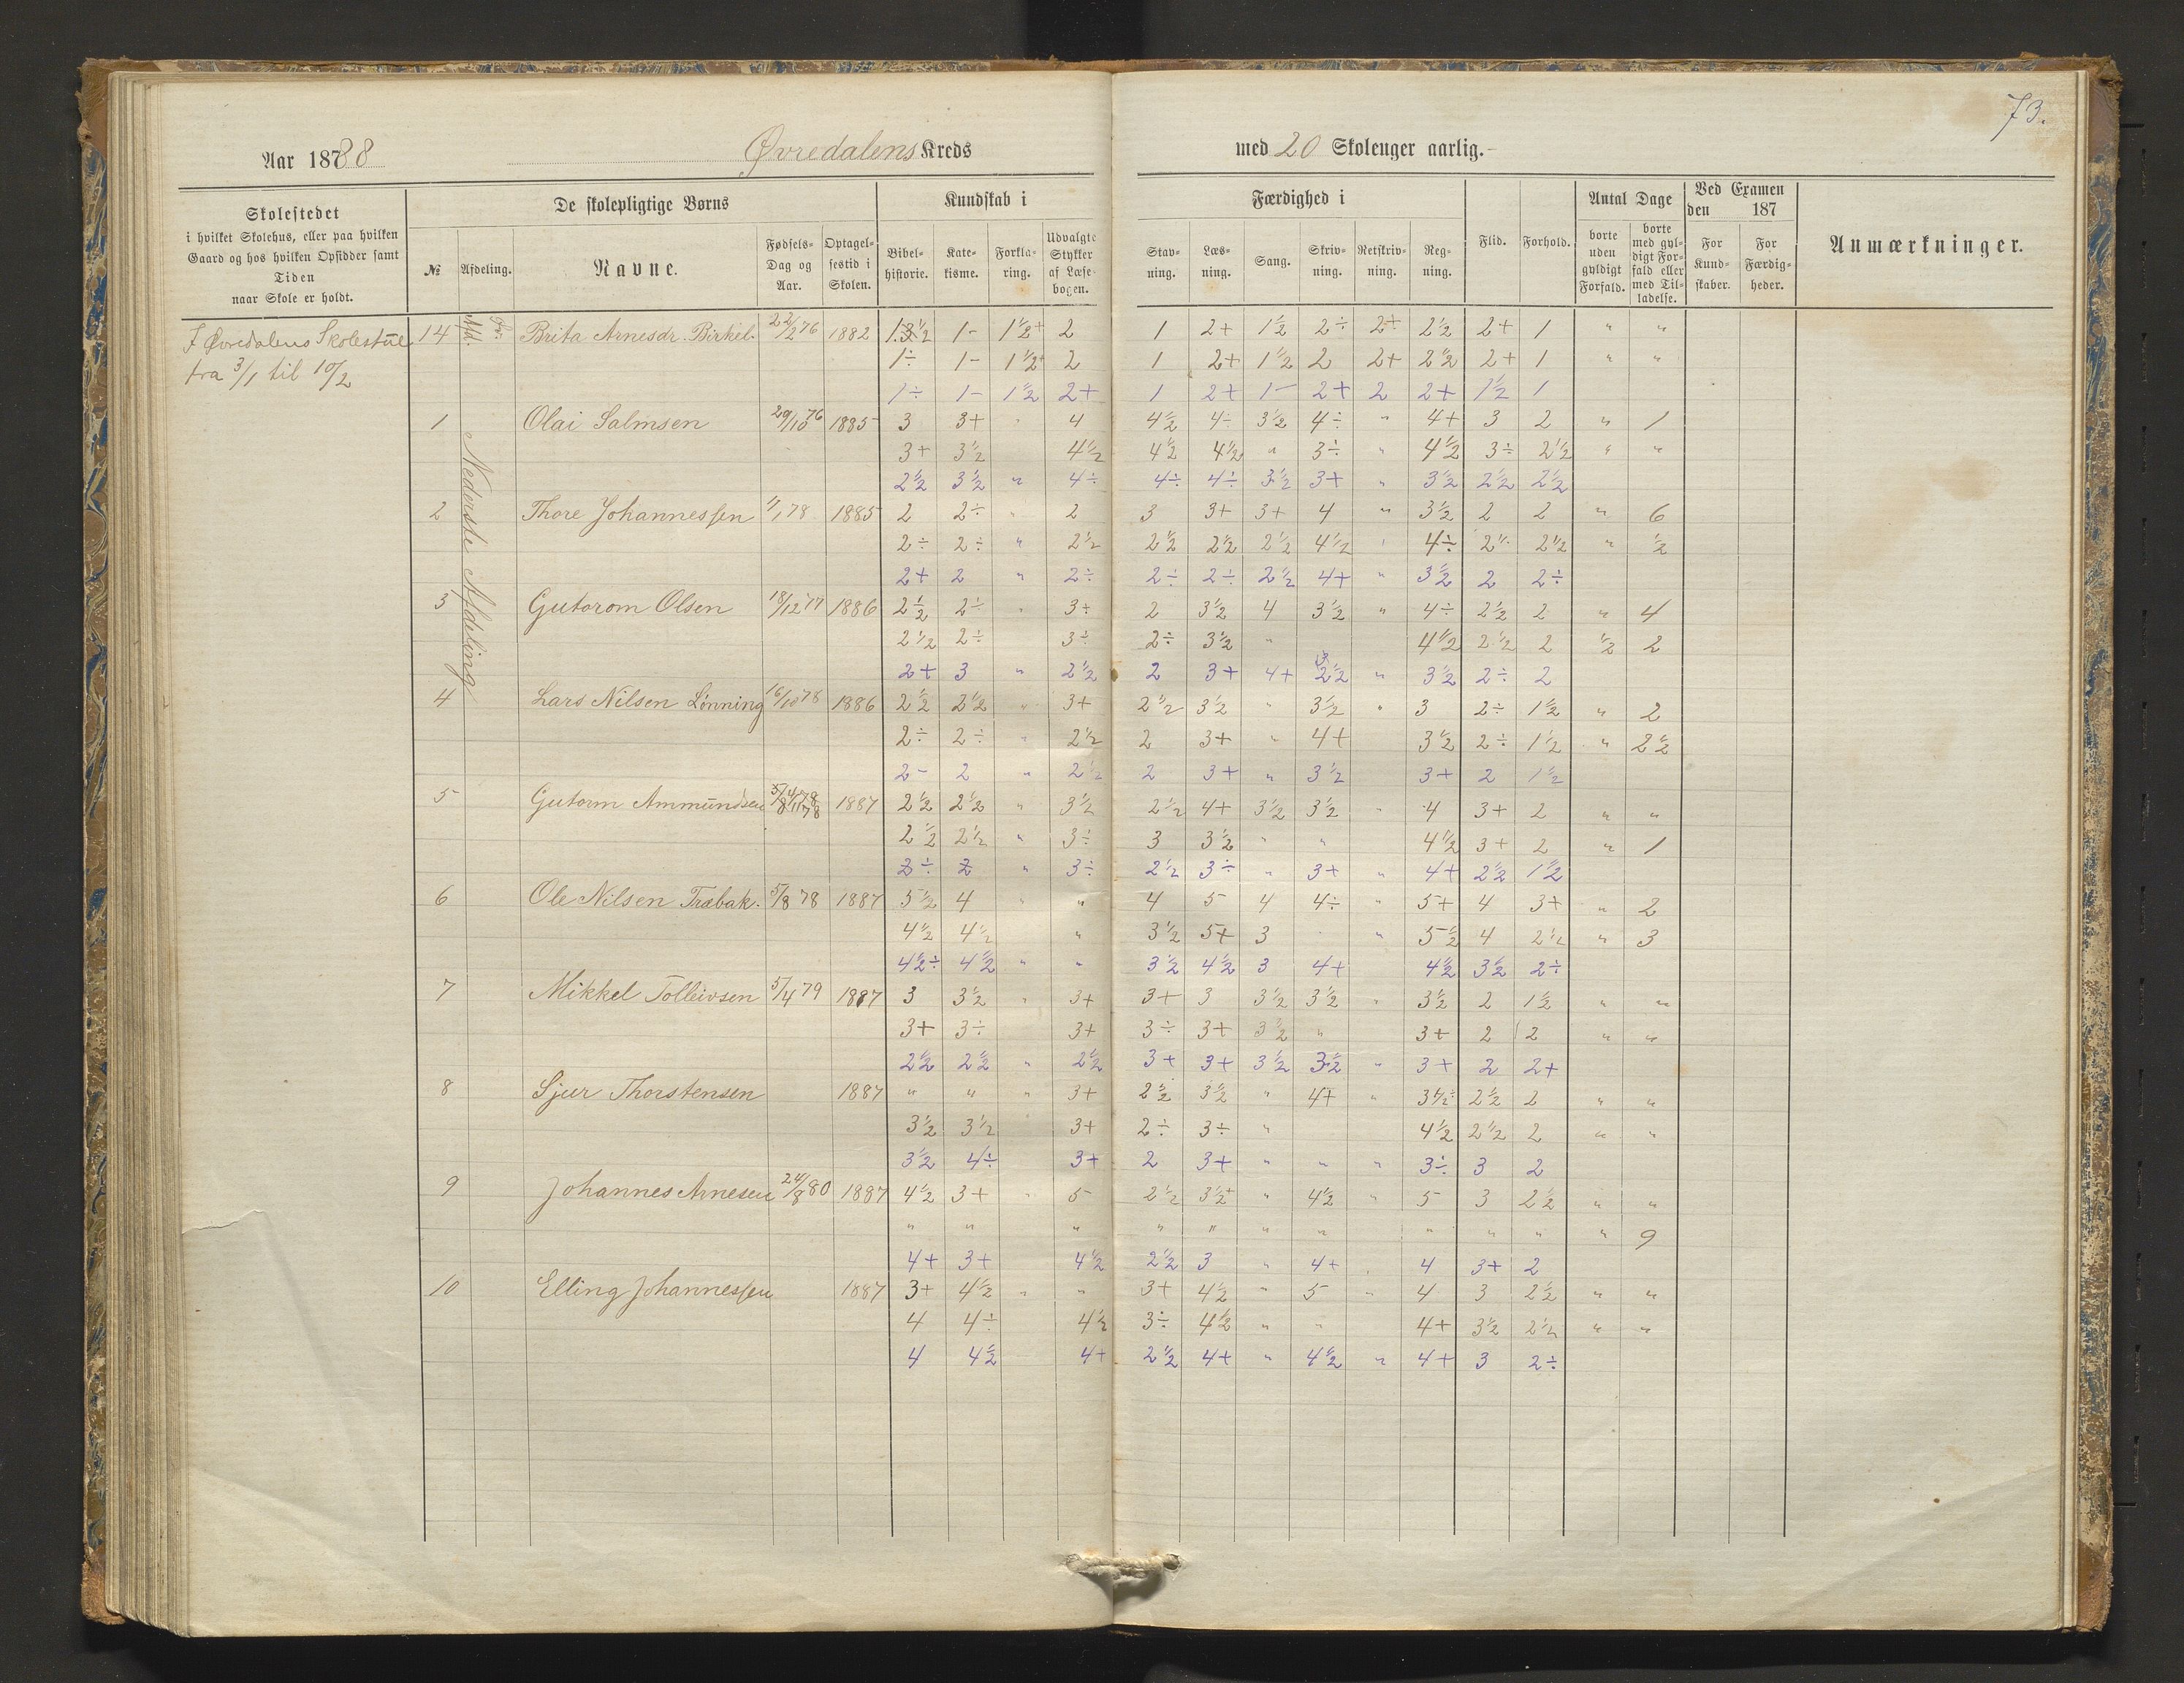 73.
Aar 18788 Øvredalens Kreds med 20 Skoleuger aarlig.-
Skolestedet
i hvilket Skolehus, eller paa hvilken
Gaard og hos hvilken Opsidder samt
Tiden
naar Skole er holdt.
De skolepligtige Børns
№ Afdeling. Navne. Fødsels-Dag og Aar. Optagelsestid i Skolen.
Kundskab i
Bibelhistorie. Katekisme. Forklaring. Udvalgte Stykker af Læsebogen.
Færdighed i
Stavning. Læsning. Sang. Skrivning. Retskrivning. Regning.
Flid. Forhold.
Antal Dage
borte uden gyldigt Forfald. borte med gyldigt Forfald eller med Tilladelse.
Ved Examen den 187
For Kundskaber. For Færdigheder.
Anmærkninger.
I Øvredalens Skolestue
fra 3/1 til 10/2
Nederste Afdeling
14 Brita Arnesdr. Birkel. 22/2 76 1882 1- 1½+ 2 1 2+ 1½ 2÷ 2+ 2½ 2+ 1 " "
1÷ 1- 1½+ 2 1 2+ 1½ 2 2+ 2½ 2+ 1 " "
1÷ 1- 1½ 2+ 1 2+ 1- 2+ 2 2+ 1½ 1
1 Olai Salmsen 29/10 76 1885 3 3+ " 4 4½ 4÷ 3½ 4÷ " 4+ 3 2 " 1
3+ 3½ 4½ 4½ 4½ " 3÷ " 4½ 3÷ 2½ " "
2½ 3½ " 4÷ 4÷ 4÷ 3½ 3+ " 3½ 2½ 2½
2 Thore Johannessen 1/1 78 1885 2 2÷ " 2 3 3+ 3+ 4 " 3½ 2 2 " 6
2÷ 2÷ " 2½ 2½ 2½ 2½ 4½ " 4÷ 2½ 2½ " ½
2+ 2 " 2÷ 2÷ 2÷ 2½ 4+ " 3½ 2 2÷
3 Gutorom Olsen 18/12 77 1886 2½ 2÷ " 3÷ 2 3½ 4 3½ " 4÷ 2½ 2 " 4
2½ 2÷ 3÷ 2÷ 3½ " 4½ 2½ 2 ½ 2
2+ 3 " 2½ 2 3+ 4+ 2½ " 3½ 2÷ 2
4 Lars Nilsen Lönning 16/10 78 1886 2½ 2½ " 3+ 2½ 3½ " 3½ " 3 2÷ 1½ " 2
2÷ 2÷ " 2½ 2 3+ " 4+ 3½ 2÷ 1½ " 2½
2- 2 " 2½ 2 3+ " 3½ 3+ 2 1½
5 Gutorm Ammundsen 1887 2½ 2½ " 3½ 2½ 4+ 3½ 3½ " 4 3+ 2 " "
2½ 2½ " 3÷ 3 3½ " " 4½ 3+ 2 " 1
2÷ 2 " 3÷ 2½ 3÷ " 3+ " 4+ 2½ 1½
6 Ole Nilsen Træbak. 5/8 78 1887 5½ 4 " " 4 5 4 4÷ " 5+ 4 3+ " 2
4½ 4½ " 3½ 5+ 3 " " 5½ 4 2½ " 3
4½÷ 4½ " " 3½ 4½ 3 4+ 4½ 3½ 2÷
7 Mikkel Tolleivsen 5/4 79 1887 3 3½ " 3+ 3+ 3 3½ 3½ " 3½ 2 1½ " "
3+ 3÷ 3+ 3÷ 3+ 3½ " 3+ 2 2 " "
2½ 2½ " 2½ 3+ 3+ 3½ 3½ " 3+ 2 2+
8 Sjur Thorstensen 1887 " " " 3+ 2½ 3½ " 4+ " 3½÷ 2½ 2 " "
3½ 3½ 3+ 2÷ 3÷ " 4½ 2½ 2 " "
3½ 4÷ 3+ 2 3+ " " " 3÷ 3 2
9 Johannes Arnesen 24/8 80 1887 4½ 3+ " 5 2½ 3½+ " 4½ " 5 3 2½ " "
" " " " " " " " " " " 9
4+ 3+ 4½ 2½ 3 " 4+ 4 3+ 2
10 Elling Johannessen 1887 3+ 4½ " " 3+ 4½ " 5 " 4 3 2½ " "
4 4÷ 4½ 3÷ 4½ " " 4+ 3½ 2½ " "
4 4½ 4+ 2½ 4+ " 4½ " 4+ 3 2÷